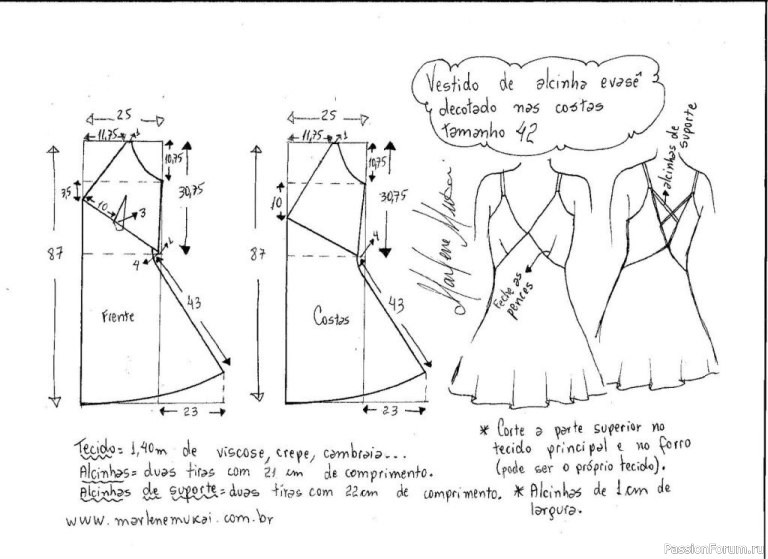 Vestido de alcinha evasê
decotado nas costas
tamanho 42
25
11,75
1
10,75
7,5
10
3
30,75
1
4
87
43
Frente
23
25
11,75
1
10,75
10
30,75
4
87
43
Costas
23
Marlene Mukai
Feche as
pences
alcinhas de
suporte
Tecido = 1,40m de viscose, crepe, cambraia...
Alcinhas = duas tiras com 21 cm de comprimento.
Alcinhas de suporte = duas tiras com 22cm de comprimento.
www.marlenemukai.com.br
* Corte a parte superior no
tecido principal e no forro
(pode ser o próprio tecido).
* Alcinhas de 1cm de
largura.
PassionForum.ru